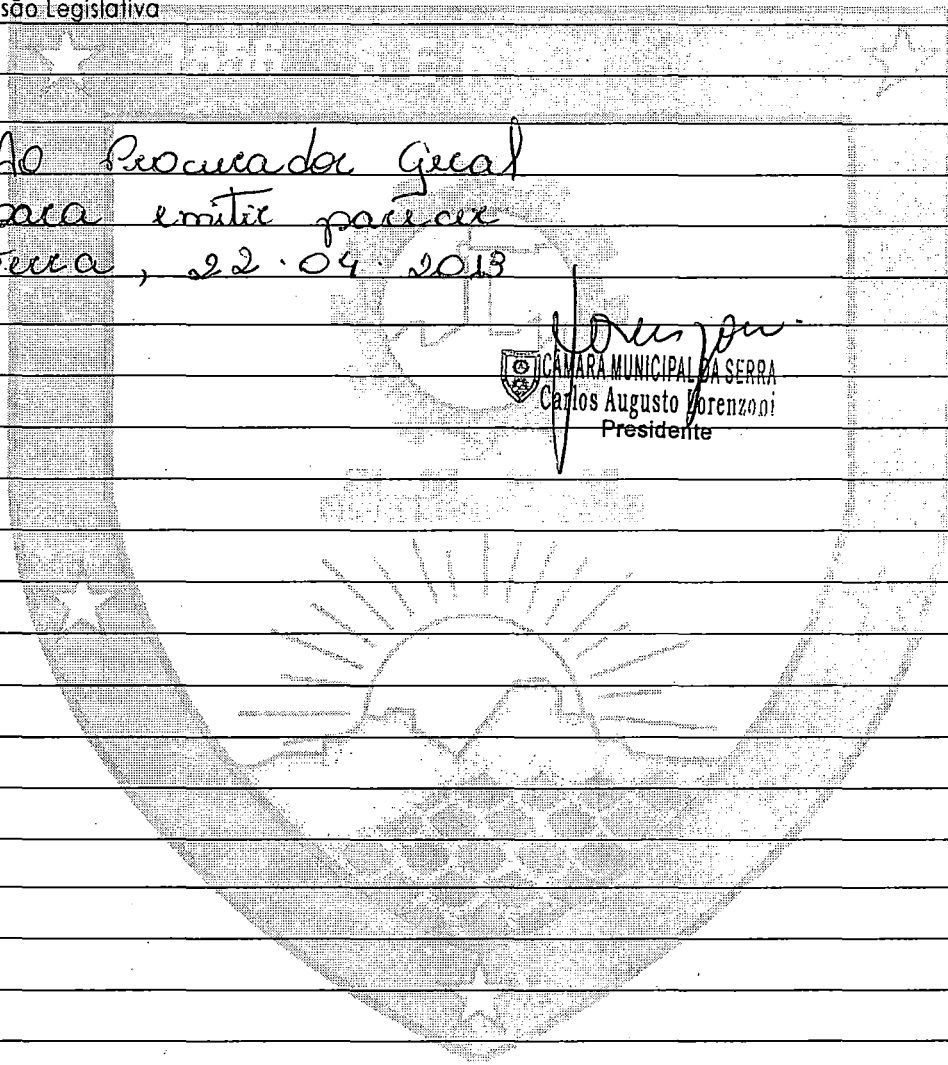 são Legislativa
1556 SERRA
Ao Procurador Geral
para emitir parecer
Serra, 22.04.2013
Lorenzoni
CÂMARA MUNICIPAL DA SERRA
Carlos Augusto Lorenzoni
Presidente